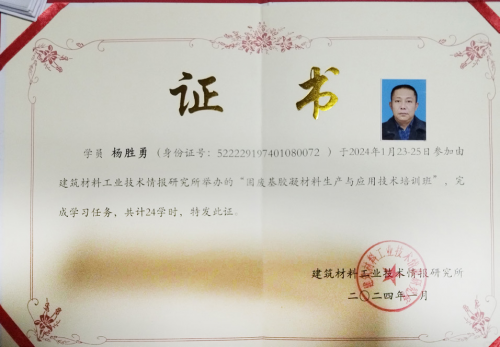 证 书
学员 杨胜勇（身份证号：522229197401080072 ）于2024年1月23-25日参加由
建筑材料工业技术情报研究所举办的“固废基胶凝材料生产与应用技术培训班”，完
成学习任务，共计24学时，特发此证。
建筑材料工业技术情报研究所
二〇二四年一月
建筑材料工业技术情报研究所